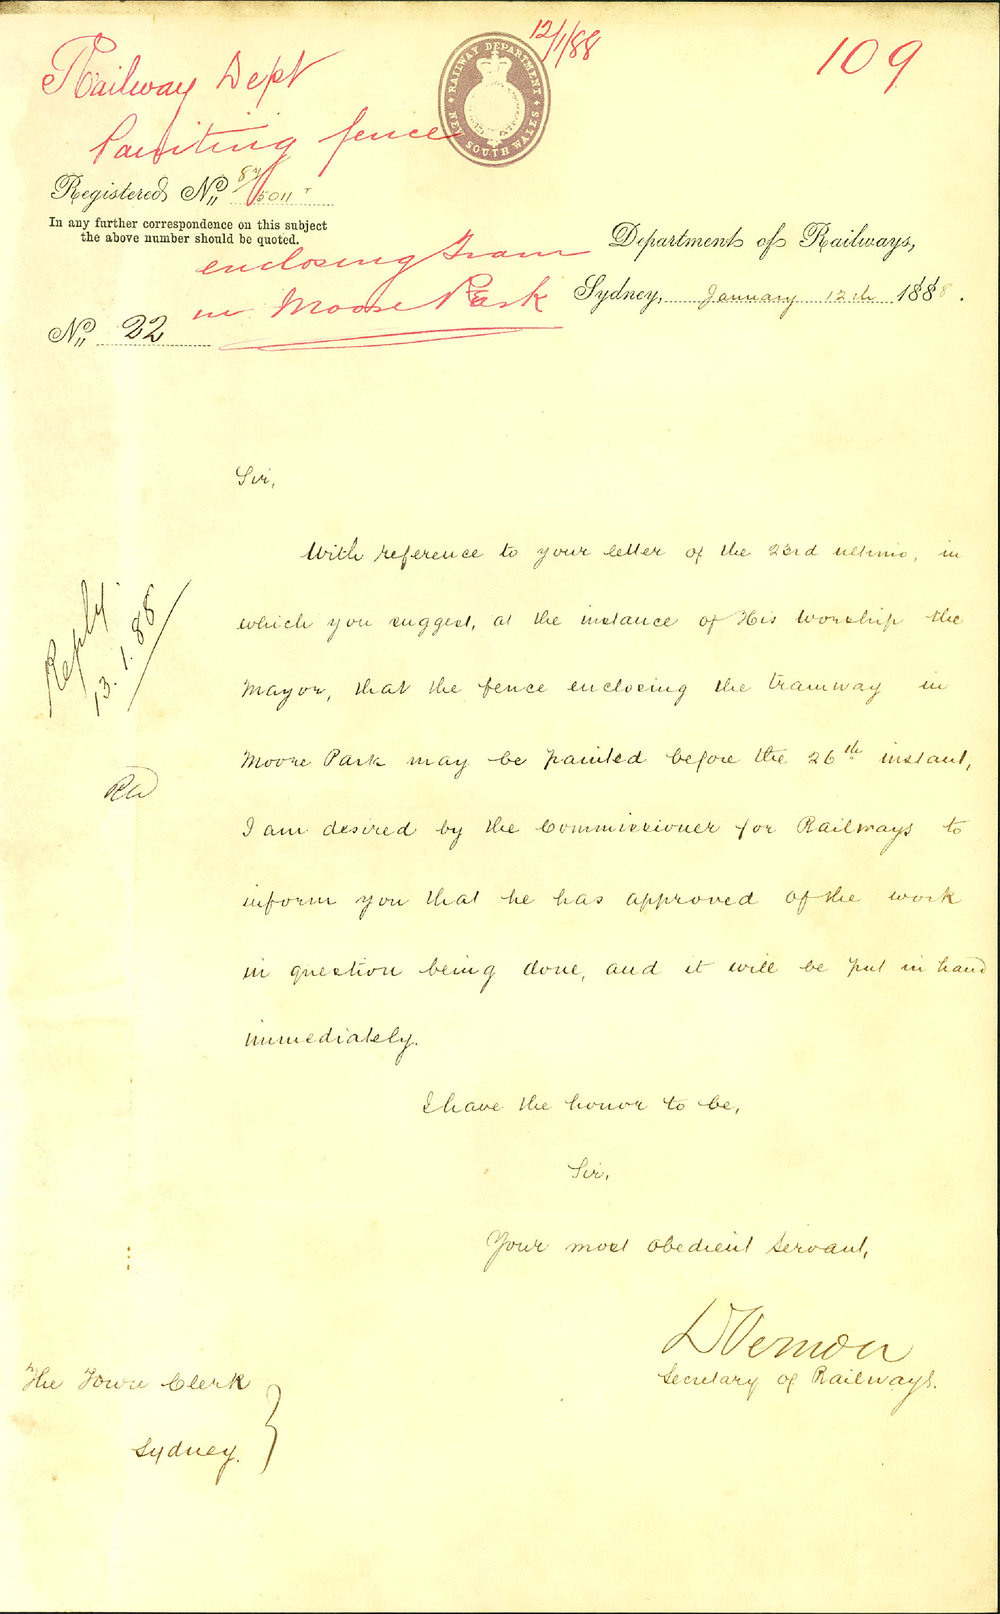 12/1/88
109
Railway Dept
Painting fence
RAILWAY DEPARTMENT
NEW SOUTH WALES
Registered No.
In any further correspondence on this subject
the above number should be quoted.
enclosing tram
in Moore Park
Department of Railways,
Sydney, January 12th 1888.
No. 22
Sir,
With reference to your letter of the 23rd ultimo, in
which you suggest, at the instance of His Worship the
Mayor, that the fence enclosing the tramway in
Moore Park may be painted before the 26th instant,
I am desired by the Commissioner for Railways to
inform you that he has approved of the work
in question being done, and it will be put in hand
immediately.
Reply
13.1.88
I have the honor to be,
Sir,
Your most obedient servant,
D Vernon
Secretary of Railways.
The Town Clerk
Sydney.